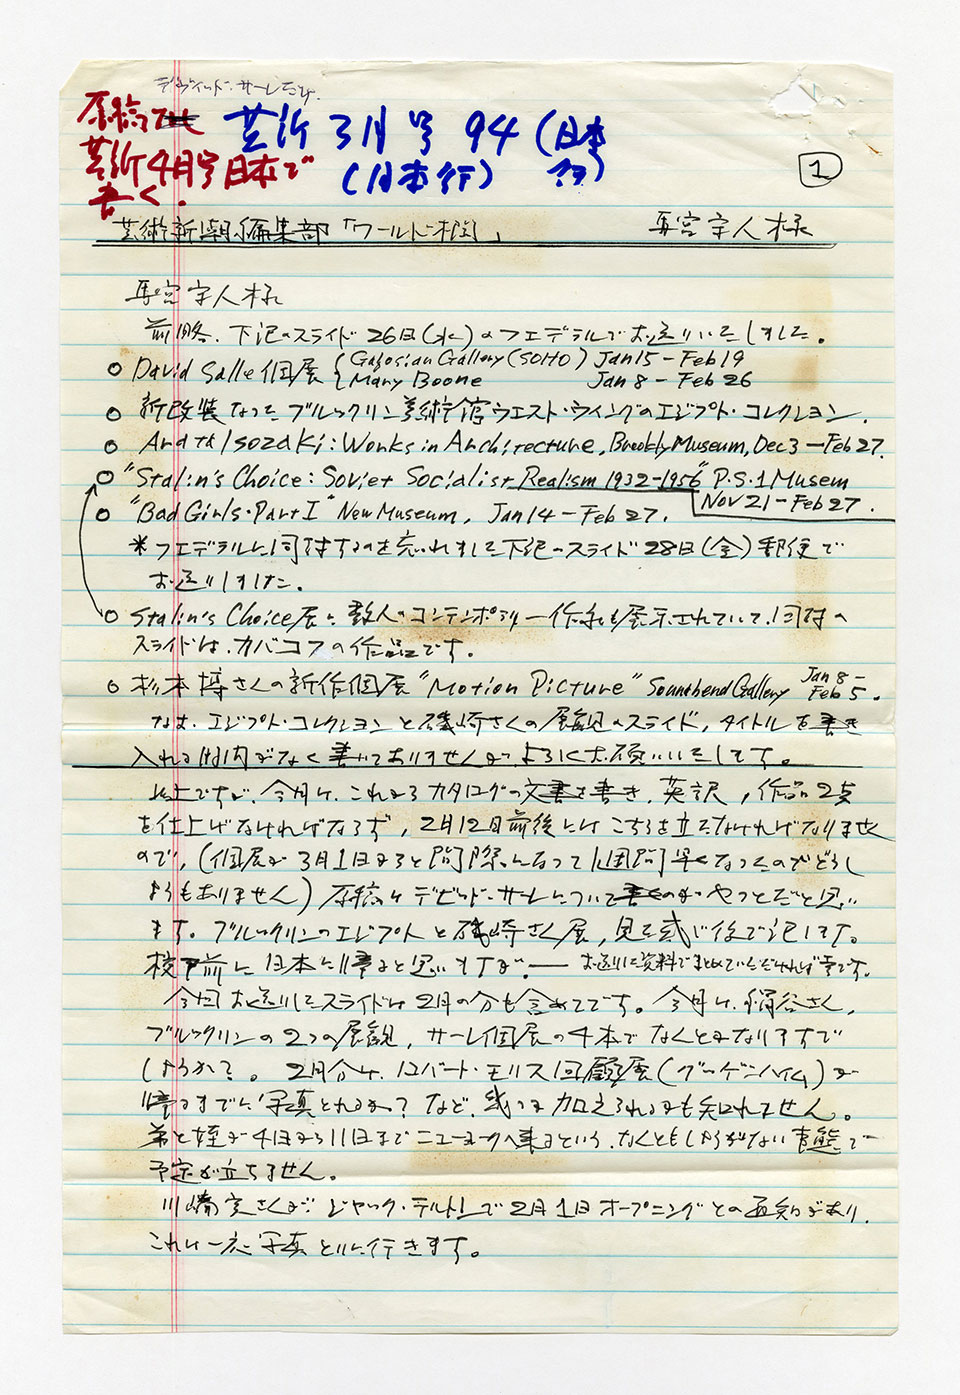 デヴィッド・サーレ
原稿
芸新 3月号 94 (日本
芸新4月号日本で
(日本行) 行)
書く.
1
芸術新潮編集部「ワールド欄」 馬宮宇人様
馬宮宇人様
前略、下記のスライド26日(水)のフェデラルでお送りいたしました。
○ David Salle 個展 { Gagosian Gallery (SOHO) Jan 15 - Feb 19
Mary Boone Jan 8 - Feb 26
○ 新改装なったブルックリン美術館ウエスト・ウィングのエジプト・コレクション.
○ Arata Isozaki: Works in Architecture, Brookly Museum, Dec 3 - Feb 27.
○ "Stalin's Choice: Soviet Socialist Realism 1932-1956" P.S.1 Musem
Nov 21 - Feb 27.
○ "Bad Girls・Part I" New Museum, Jan 14 - Feb 27.
* フェデラルに同封するのを忘れました下記のスライド28日(金)郵便で
お送りしました.
○ Stalin's Choice展に数人のコンテンポラリー作品も展示されていて、同封の
スライドは、カバコフの作品です.
○ 杉本博さんの新作個展 "Motion Picture" Sonnabend Gallery Jan 8 -
Feb 5.
なお、エジプト・コレクションと磯崎さんの展観のスライド、タイトルを書き
入れる時間がなく書いてありませんがよろしくお願いいたします。
以上ですが、今月は、これからカタログの文書を書き、英訳、作品2点
を仕上げなければならず、2月12日前後にはこちらを立たなければなりません
ので、(個展が3月1日からと 1週間早くなったのでどうし
ようもありません)原稿はデビッド・サーレについて書くのがやっとだと思い
ます。ブルックリンのエジプトと磯崎さん展、見た感じ後で記します。
校了前に日本に帰ると思いますが、― お送りした資料でまとめていただければ幸です.
今回お送りしたスライドは2月の分も含めてです。今月は、 さん、
ブルックリンの2つの展観、サーレ個展の4本でなんとかなりますで
しょうか?。2月分は、ロバート・モリス回顧展(グッゲンハイム)が
帰るまでに写真とれるか?など、 加えられるかも知れません。
弟と姪が4日から11日までニューヨークへ来るという、なんともしようがない 態で
予定が立ちません.
川 さんが ジャック・ティルトンで2月1日オープニングとの通知があり、
これは一応写真とりに行きます。